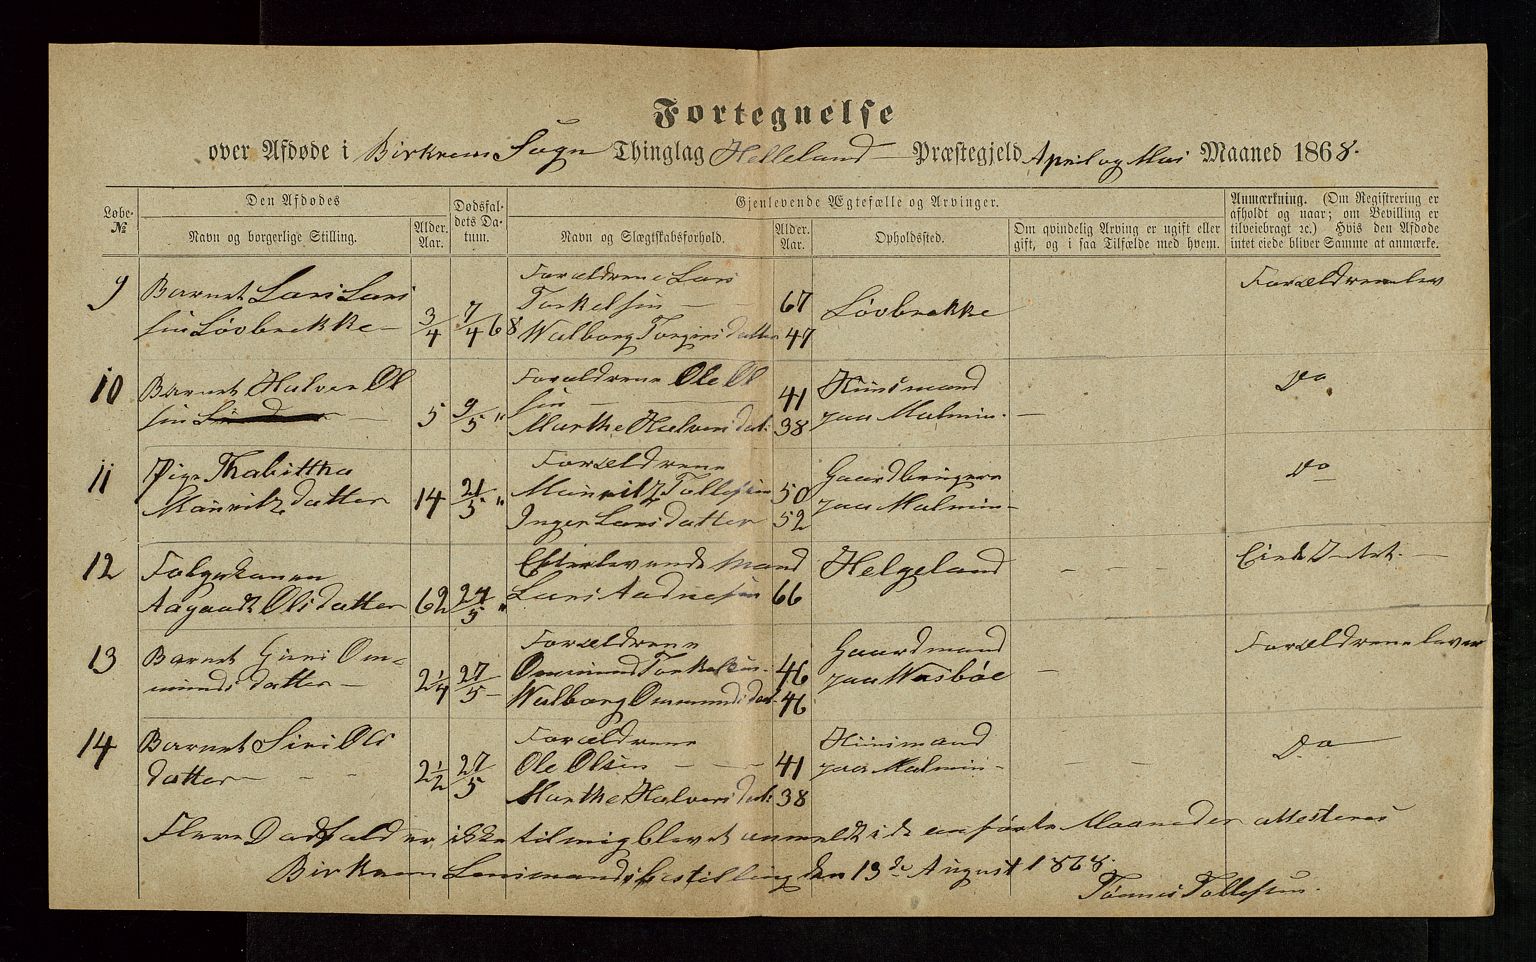 Fortegnelse
over Afdøde i Birkrem Sogn Thinglag Helleland Præstegjeld April og Mai Maaned 1868.
Løbe-
№
Den Afdødes
Navn og borgerlige Stilling.
Alder.
Aar.
Dødsfal-
dets Da-
tum.
Gjenlevende Ægtefælle og Arvinger.
Navn og Slægtskabsforhold.
Alder.
Aar.
Opholdssted.
Om qvindelig Arving er ugift eller
gift, og i saa Tilfælde med hvem.
Anmærkning. (Om Registrering er
afholdt og naar; om Bevilling er
tilveiebragt ꝛc.) Hvis den Afdøde
intet eiede bliver Samme at anmærke.
9
Barnet Lars Lars
sen Løvbrekke —
3/4
7/4 68
Forældrene Lars
Torkelsen — — 67
Walborg Torgersdatter 47
Løvbrekke
Forældrene lev
10
Barnet Halvor Ol
sen
5
9/5 "
Forældrene Ole Ol
sen — 41
Marthe Halvorsdat: 38
Huusmand
paa Malmin —
Do
11
Pige Thabittha
Mauritzdatter
14
21/5 "
Forældrene
Mauritz Tollefsen 50
Inger Larsdatter 52
Gaardbruger
paa Malmin —
Do
12
Følgekonen
Aagaadt Olsdatter
62
24/5 "
Efterlevende Mand
Lars Aadnesen 66
Helgeland
— — —
Eiede Int. —
13
Barnet Guri Om-
mundsdatter —
2 1/4
27/5 —
Forældrene
Ommund Torkelsen - 46
Walborg Ommundsdat. 46
Gaardmand
paa Wasbøe
—
Forældrene lever
14
Barnet Siri Ols
datter — — —
2 1/2
27/5
Forældrene
Ole Olsen — — — 41
Marthe Halvorsdat: 38
Huusmand
paa Malmin —
— —
Do
Flere Dødsfald er ikke til mig blevet anmeldt i de anførte Maaneder attesteres
Birkrem Lensmandsbestilling den 13de August 1868.
Tønnes Tollefsen.